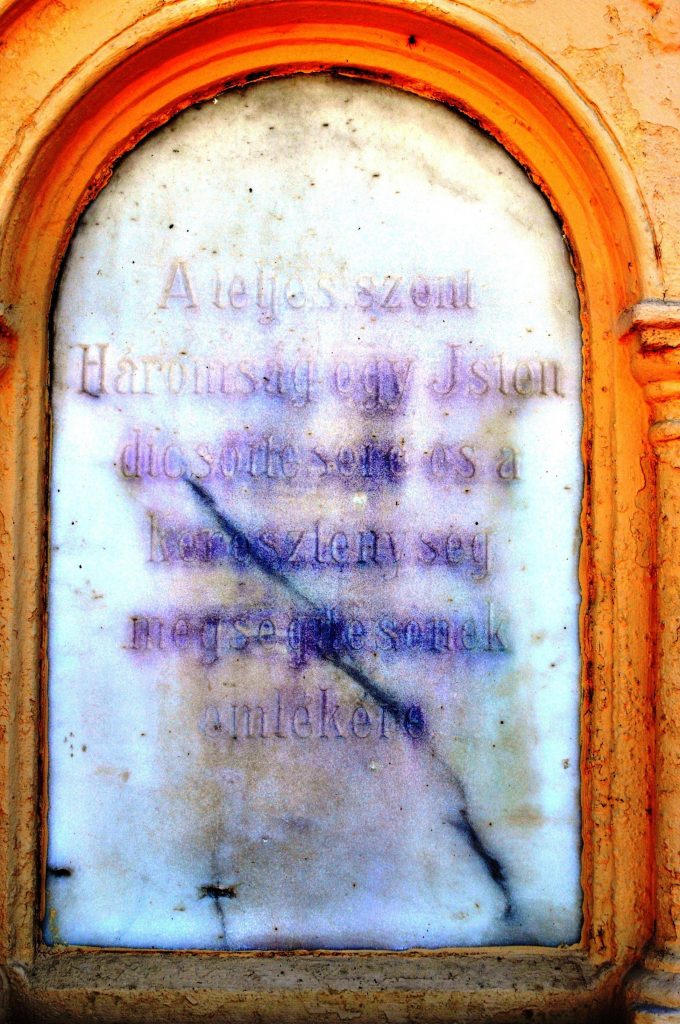 A teljes szent
Háromság egy Jsten
dicsőitésére és a
kereszténység
megsegitésének
emlékére